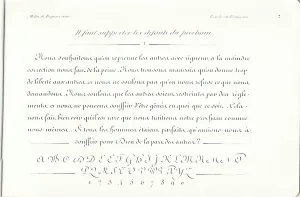 Il faut supporter les défauts du prochain
Nous souhaitons qu'on reprenne les autres avec rigueur, à la moindre
correction nous fait de la peine. Nous trouvons mauvais qu'on donne trop
de liberté aux autres, et nous ne voulons pas qu'on nous refuse ce que nous
demandons. Nous voulons que les autres soient restreints par des règle-
ments, et nous ne pouvons souffrir d'être gênés en quoi que ce soit. Cela
nous fait bien voir qu'il est rare que nous traitions notre prochain comme
nous-mêmes. Si tous les hommes étaient parfaits, qu'aurions-nous à
souffrir pour Dieu de la part des autres ?
A B C D E F G H I J K L M N O
P Q R S T U V W X Y Z
1 2 3 4 5 6 7 8 9 0